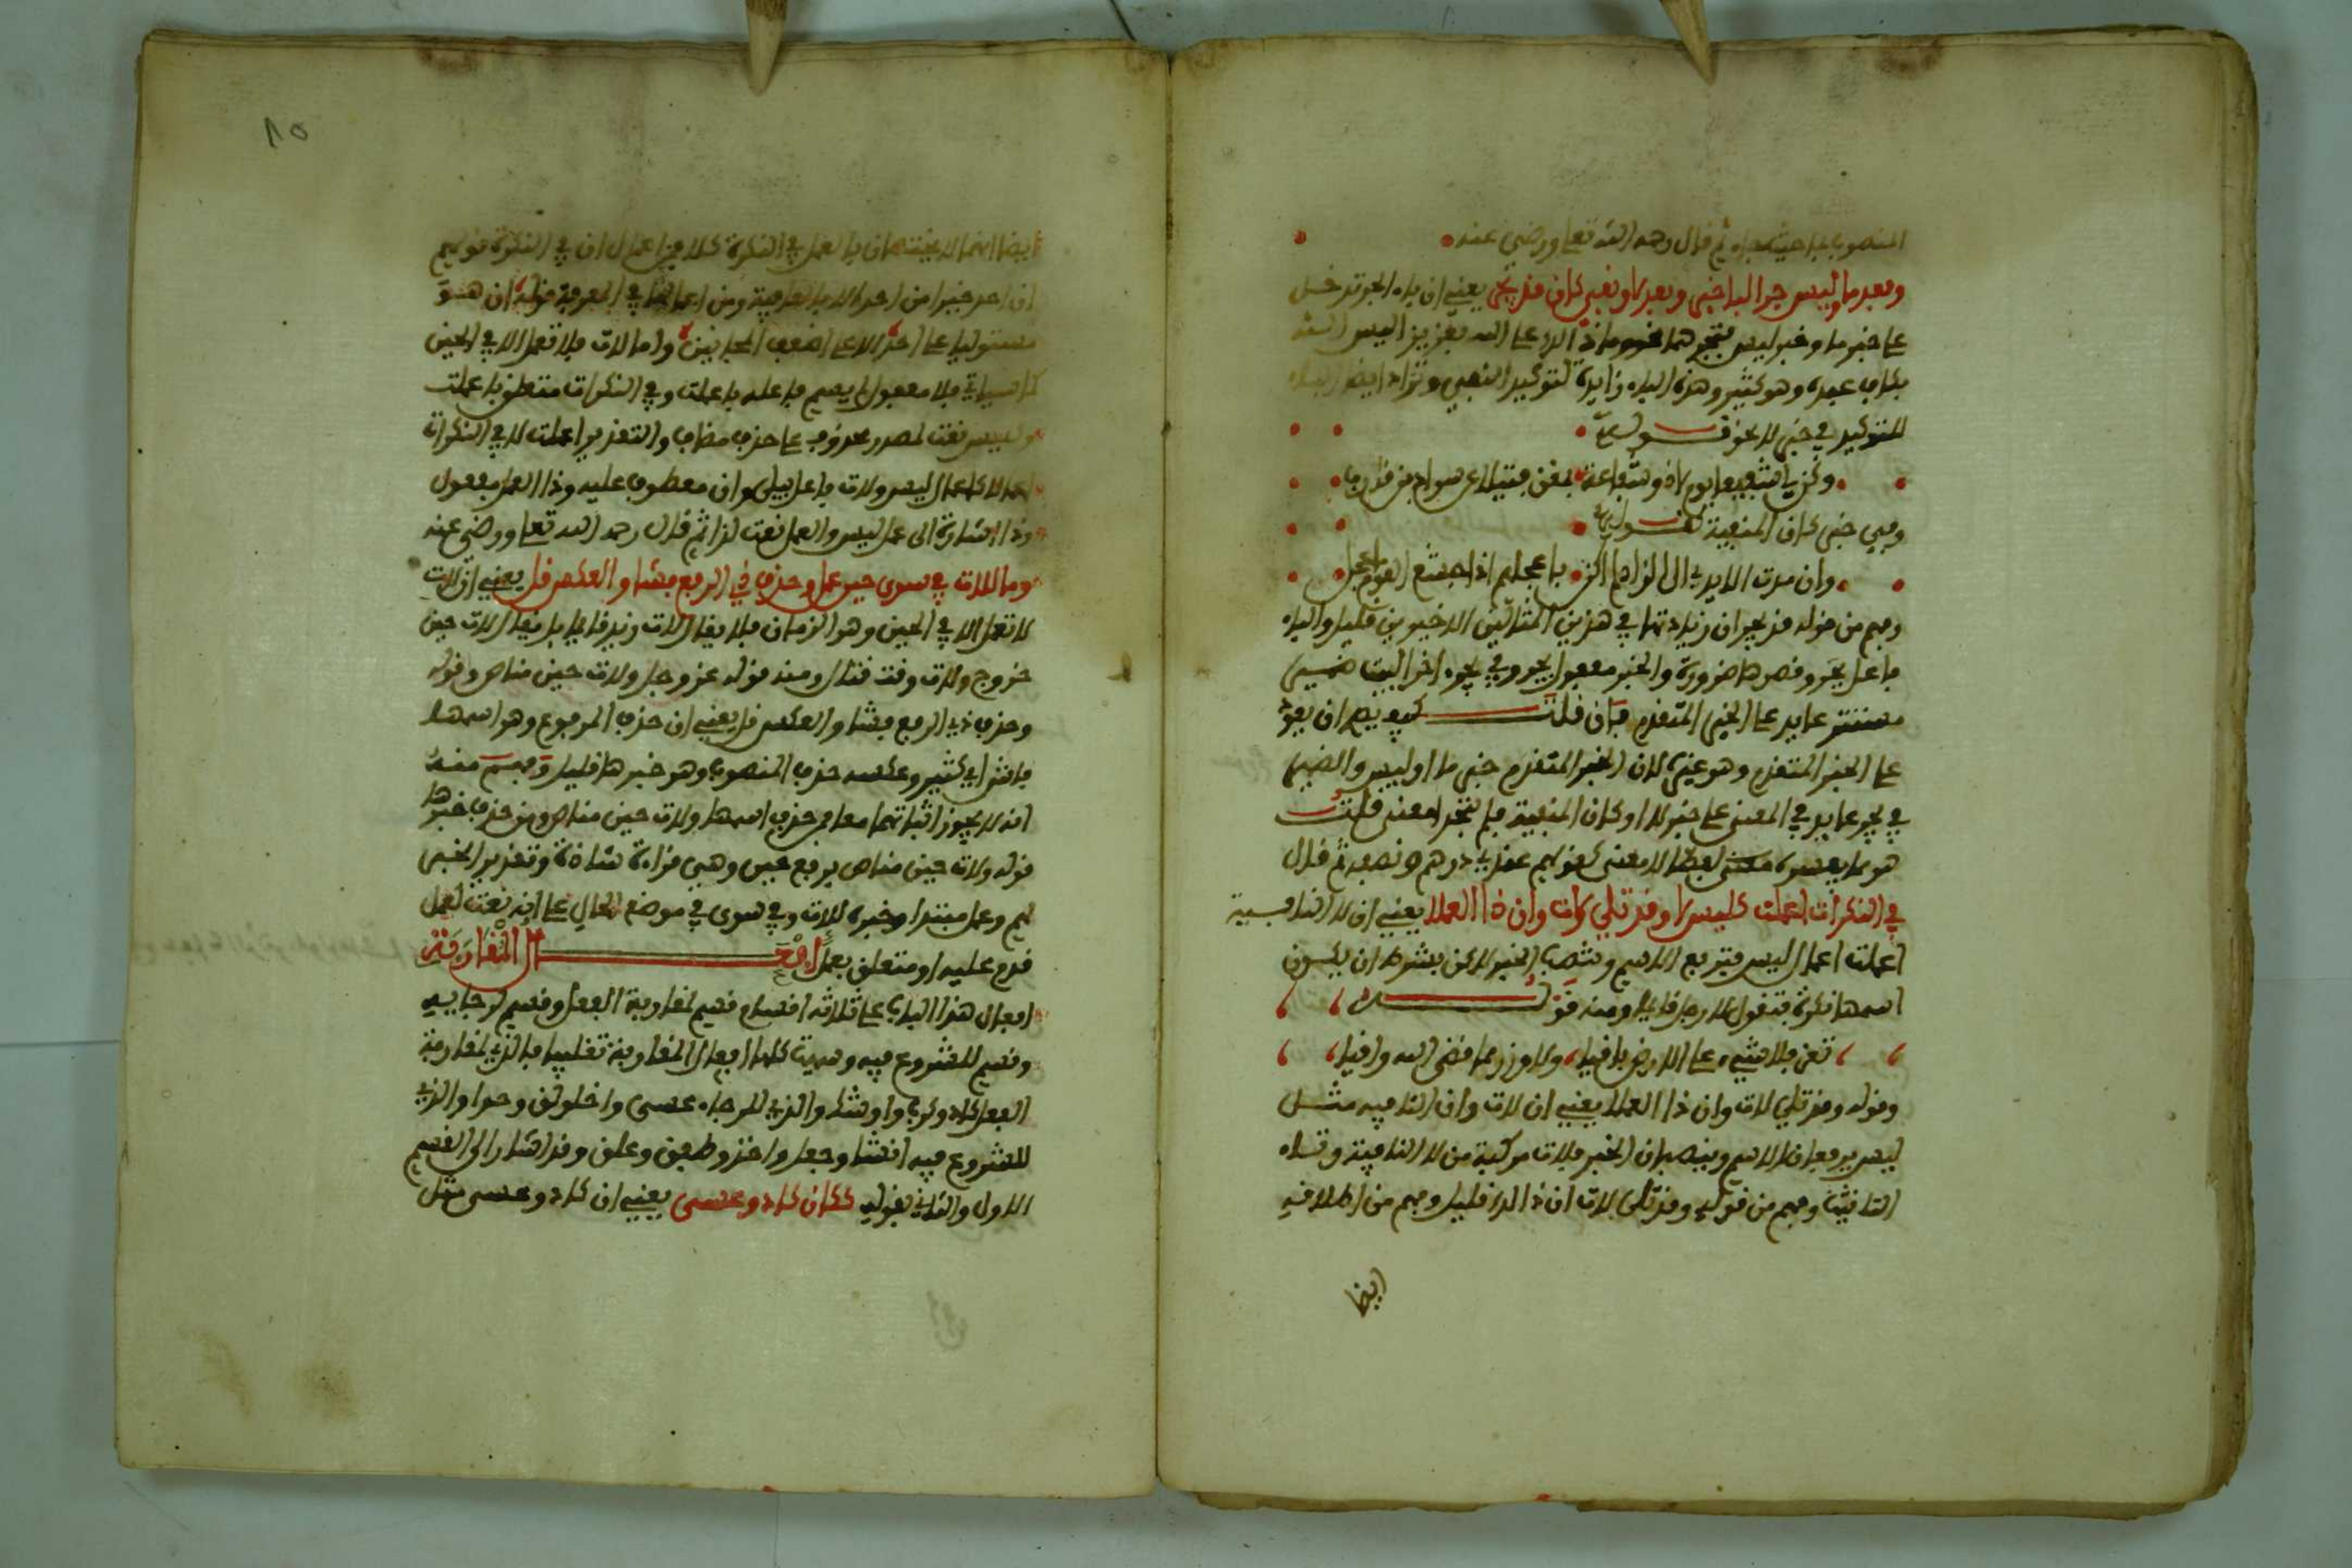 المنصوب بما حيث جاء ثم قال رحمه الله تعلى ورضي عنه
وبعد ما وليس جر البا الخبر وبعد لا ونفي كان قد يجر يعني ان باء الجر تدخل
على خبر ما وخبر ليس فتجرهما نحو وما ذلك على الله بعزيز اليس الله
بكاف عبده وهو كثير وهذه الباء زايدة لتوكيد النفي وتزاد ايضا الباء
للتوكيد في خبر لا نحو قوله
وكن لي شفيعا يوم لا ذو شفاعة بمغن فتيلا عن سواد بن قارب
وفي خبر كان المنفية كقوله
وان مدت الايدي الى الزاد لم اكن باعجلهم اذ اجشع القوم اعجل
وفهم من قوله قد يجر ان زيادتها في هذين المثالين الاخيرين قليل والباء
فاعل بجر وقصرها ضرورة والخبر مفعول بجر وفي يجر اخر البيت ضمير
مستتر عايد على الخبر المتقدم فان قلت كيف يصح ان يعود
على الخبر المتقدم وهو غيره لان الخبر المتقدم خبر ما او ليس والضمير
في يجر عايد في المعنى على خبر لا او كان المنفية فلم يتحدا معنى قلت
هو مما يفسره لفظا لا معنى كقولهم عندي درهم ونصفه ثم قال
في النكرات اعملت كليس لا وقد تلي لات وان ذا العملا يعني ان لا النافية
اعملت اعمال ليس فترفع الاسم وتنصب الخبر لاكن بشرط ان يكون
اسمها نكرة فتقول لا رجل قايما ومنه قوله
تعز فلا شيء على الارض باقيا ولا وزر مما قضى الله واقيا
وقوله وقد تلي لات وان ذا العملا يعني ان لات وان النافيه مثل
ليس يرفعان الاسم وينصبان الخبر فلات مركبة من لا النافية وتاء
التانيث وفهم من قوله وقد تلي لات ان ذلك قليل وفهم من اطلاقه
ايضا
ايضا انهما لا يختصان بالعمل في النكرة كلا فمن اعمال ان في النكرة قولهم
ان احد خيرا من احد الا بالعافية ومن اعمالها في المعرفة قوله ان هو
مستوليا على احد الا على اضعف المجانين واما لات فلا تعمل الا في الحين
كما سياتي فلا مفعول لم يسم فاعله باعملت وفي النكرات متعلق باعملت
وكليس نعت لمصدر محذوف على حذف مضاف والتقدير اعملت لا في النكرات
اعمالا كاعمال ليس ولات فاعل بتلي وان معطوف عليه وذا العمل مفعول
وذا اشارة الى عمل ليس والعمل نعت لذا ثم قال رحمه الله تعلى ورضي عنه
وما للات في سوى حين عمل وحذف ذي الرفع فشا والعكس قل يعني ان لات
لا تعمل الا في الحين وهو الزمان فلا يقال لات زيد قايما بل يقال لات حين
خروج ولات وقت قتال ومنه قوله عز وجل ولات حين مناص وقوله
وحذف ذي الرفع فشا والعكس قل يعني ان حذف المرفوع وهو اسمها
فاش اي كثير وعكسه حذف المنصوب وهو خبرها قليل وفهم منه
انه لا يجوز اثباتهما معا فمن حذف اسمها ولات حين مناص ومن حذف خبرها
قوله ولات حين مناص برفع حين وهي قراءة شاذة وتقدير الخبر
لهم وعمل مبتدا وخبره للات وفي سوى في موضع الحال على انه نعت لعمل
قدم عليه او متعلق بعمل افعال المقاربة
افعال هذا الباب على ثلاثة اقسام قسم لمقاربة الفعل وقسم لرجايه
وقسم للشروع فيه وسميت كلها افعال المقاربة تغليبا فالذي لمقاربة
الفعل كاد وكرب واوشك والذي للرجاء عسى واخلولق وحرا والذي
للشروع فيه انشا وجعل واخذ وطفق وعلق وقد اشار الى القسم
الاول والثاني بقوله ككان كاد وعسى يعني ان كاد وعسى مثل